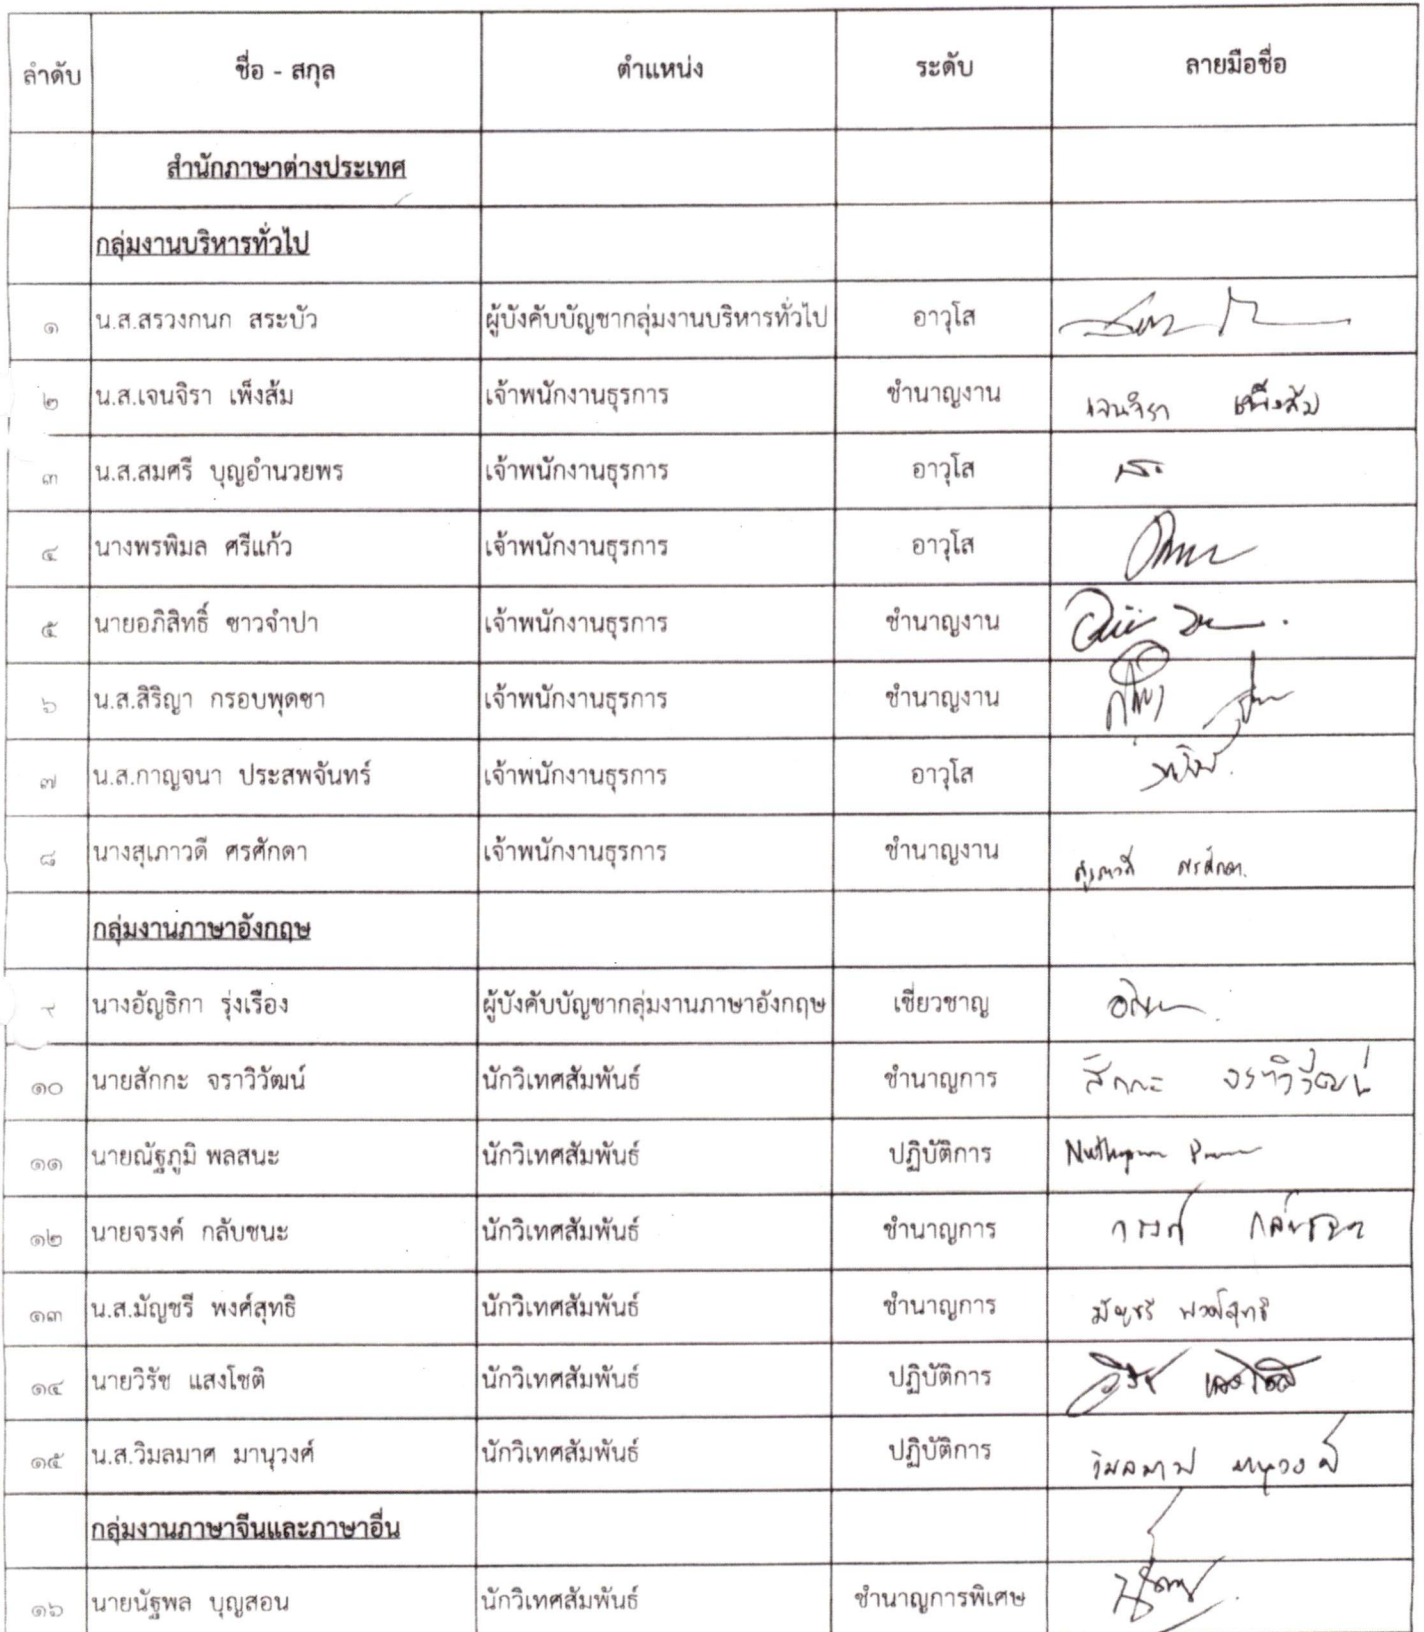 ลำดับ ชื่อ - สกุล ตำแหน่ง ระดับ ลายมือชื่อ
สำนักภาษาต่างประเทศ
กลุ่มงานบริหารทั่วไป
๑ น.ส.สรวงกนก สระบัว ผู้บังคับบัญชากลุ่มงานบริหารทั่วไป อาวุโส
๒ น.ส.เจนจิรา เพ็งส้ม เจ้าพนักงานธุรการ ชำนาญงาน เจนจิรา เพ็งส้ม
๓ น.ส.สมศรี บุญอำนวยพร เจ้าพนักงานธุรการ อาวุโส
๔ นางพรพิมล ศรีแก้ว เจ้าพนักงานธุรการ อาวุโส
๕ นายอภิสิทธิ์ ชาวจำปา เจ้าพนักงานธุรการ ชำนาญงาน
๖ น.ส.สิริญา กรอบพุดซา เจ้าพนักงานธุรการ ชำนาญงาน
๗ น.ส.กาญจนา ประสพจันทร์ เจ้าพนักงานธุรการ อาวุโส
๘ นางสุเภาวดี ศรศักดา เจ้าพนักงานธุรการ ชำนาญงาน สุเภาวดี ศรศักดา
กลุ่มงานภาษาอังกฤษ
๙ นางอัญธิกา รุ่งเรือง ผู้บังคับบัญชากลุ่มงานภาษาอังกฤษ เชี่ยวชาญ
๑๐ นายสักกะ จราวิวัฒน์ นักวิเทศสัมพันธ์ ชำนาญการ สักกะ จราวิวัฒน์
๑๑ นายณัฐภูมิ พลสนะ นักวิเทศสัมพันธ์ ปฏิบัติการ
๑๒ นายจรงค์ กลับชนะ นักวิเทศสัมพันธ์ ชำนาญการ จรงค์ กลับชนะ
๑๓ น.ส.มัญชรี พงศ์สุทธิ นักวิเทศสัมพันธ์ ชำนาญการ มัญชรี พงศ์สุทธิ
๑๔ นายวิรัช แสงโชติ นักวิเทศสัมพันธ์ ปฏิบัติการ วิรัช แสงโชติ
๑๕ น.ส.วิมลมาศ มานุวงศ์ นักวิเทศสัมพันธ์ ปฏิบัติการ วิมลมาศ มานุวงศ์
กลุ่มงานภาษาจีนและภาษาอื่น
๑๖ นายนัฐพล บุญสอน นักวิเทศสัมพันธ์ ชำนาญการพิเศษ